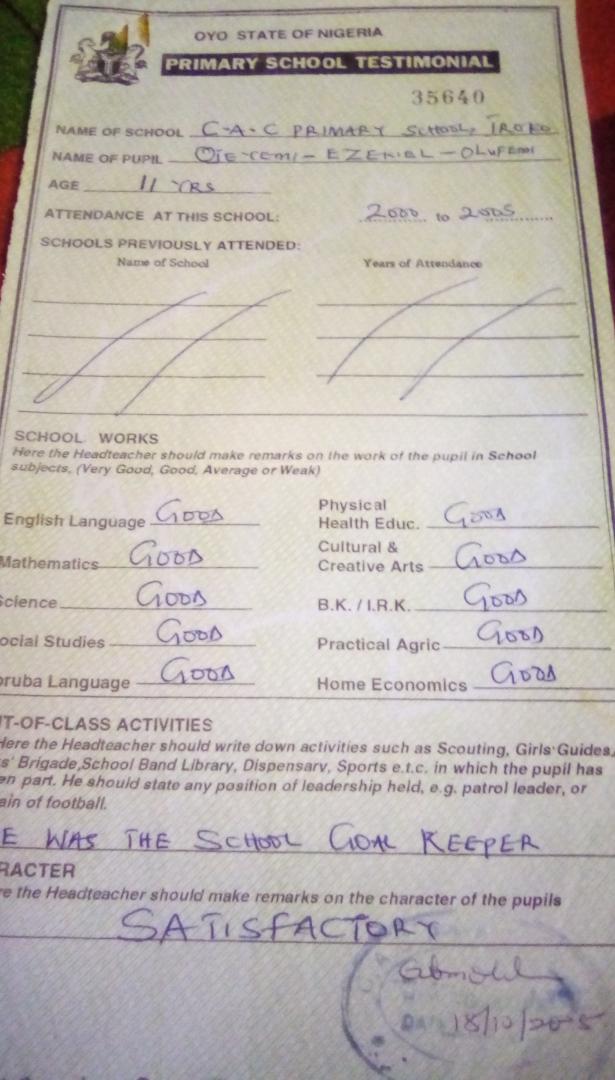 OYO STATE OF NIGERIA
PRIMARY SCHOOL TESTIMONIAL
35640
NAME OF SCHOOL C-A-C PRIMARY SCHOOL, IROKO
NAME OF PUPIL OJEYEMI - EZEKIEL - OLUFEMI
AGE 11 YRS
ATTENDANCE AT THIS SCHOOL: 2000 to 2005
SCHOOLS PREVIOUSLY ATTENDED:
Name of School Years of Attendance
SCHOOL WORKS
Here the Headteacher should make remarks on the work of the pupil in School
subjects. (Very Good, Good, Average or Weak)
English Language GOOD Physical Health Educ. GOOD
Mathematics GOOD Cultural & Creative Arts GOOD
Science GOOD B.K. / I.R.K. GOOD
ocial Studies GOOD Practical Agric GOOD
oruba Language GOOD Home Economics GOOD
T-OF-CLASS ACTIVITIES
Here the Headteacher should write down activities such as Scouting, Girls' Guides,
s' Brigade,School Band Library, Dispensary, Sports e.t.c. in which the pupil has
en part. He should state any position of leadership held, e.g. patrol leader, or
ain of football.
E WAS THE SCHOOL GOAL KEEPER
RACTER
re the Headteacher should make remarks on the character of the pupils
SATISFACTORY
18/10/2005